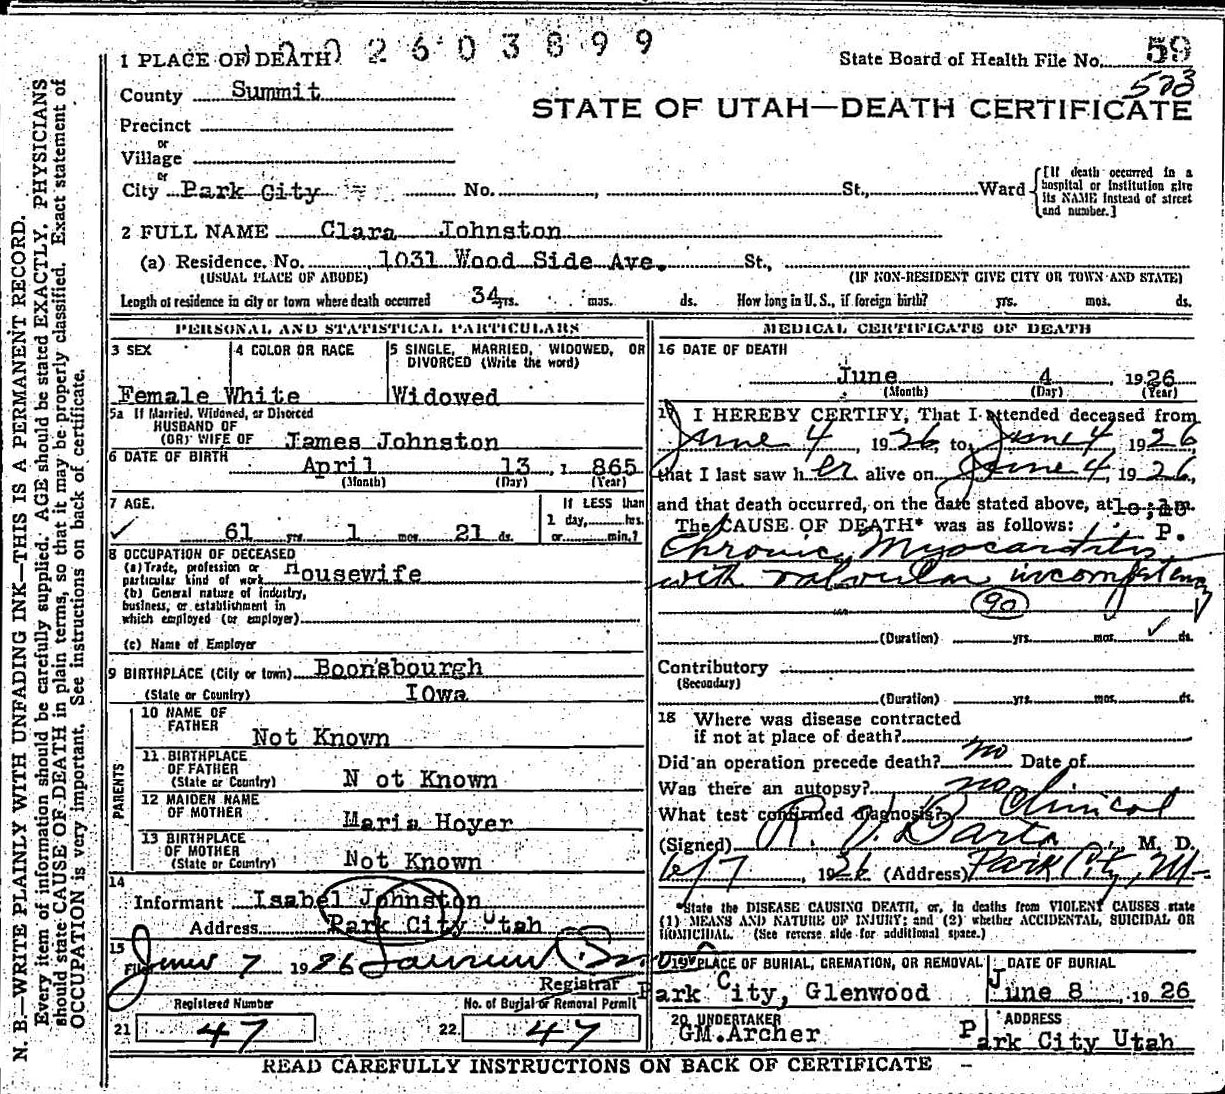 1 PLACE OF DEATH 2603899
State Board of Health File No. 59
County Summit
523
STATE OF UTAH—DEATH CERTIFICATE
Precinct
or
Village
or
City Park City No. St., Ward
[If death occurred in a hospital or institution give its NAME instead of street and number.]
2 FULL NAME Clara Johnston
(a) Residence. No. 1031 Wood Side Ave. St.,
(USUAL PLACE OF ABODE) (IF NON-RESIDENT GIVE CITY OR TOWN AND STATE)
Length of residence in city or town where death occurred 34 yrs. mos. ds. How long in U. S., if foreign birth? yrs. mos. ds.
PERSONAL AND STATISTICAL PARTICULARS
3 SEX 4 COLOR OR RACE 5 SINGLE, MARRIED, WIDOWED, OR
DIVORCED (Write the word)
Female White Widowed
5a If Married, Widowed, or Divorced
HUSBAND OF
(OR) WIFE OF James Johnston
6 DATE OF BIRTH April 13, 1 865
(Month) (Day) (Year)
7 AGE. If LESS than
1 day, hrs.
61 yrs 1 mos 21 ds. or min.?
8 OCCUPATION OF DECEASED
(a) Trade, profession or
particular kind of work Housewife
(b) General nature of industry,
business, or establishment in
which employed (or employer)
(c) Name of Employer
9 BIRTHPLACE (City or town) Boonsbourgh
(State or Country) IOwa
PARENTS
10 NAME OF
FATHER Not Known
11 BIRTHPLACE
OF FATHER
(State or Country) N ot Known
12 MAIDEN NAME
OF MOTHER Maria Hoyer
13 BIRTHPLACE
OF MOTHER
(State or Country) Not Known
14
Informant Isabel Johnston
Address Park City Utah
15
Filed June 7 1926
Registrar
Registered Number No. of Burial or Removal Permit
21 47 22 47
MEDICAL CERTIFICATE OF DEATH
16 DATE OF DEATH
June 4, 1926
(Month) (Day) (Year)
17 I HEREBY CERTIFY, That I attended deceased from
June 4, 1926, to June 4 1926
that I last saw her alive on June 4, 1926,
and that death occurred, on the date stated above, at m.
The CAUSE OF DEATH* was as follows: P.
Chronic Myocarditis
with valvular incompetency
90
(Duration) yrs. mos. ds.
Contributory
(Secondary)
(Duration) yrs. mos. ds.
18 Where was disease contracted
if not at place of death?
Did an operation precede death? no Date of
Was there an autopsy? no
What test confirmed diagnosis? Clinical
(Signed) R. V. Barta, M. D.
6/7, 1926 (Address) Park City, Ut
*State the DISEASE CAUSING DEATH, or, in deaths from VIOLENT CAUSES state
(1) MEANS AND NATURE OF INJURY; and (2) whether ACCIDENTAL, SUICIDAL OR
HOMICIDAL. (See reverse side for additional space.)
19 PLACE OF BURIAL, CREMATION, OR REMOVAL DATE OF BURIAL
Park City, Glenwood June 8, 1926
20 UNDERTAKER ADDRESS
GM.Archer Park City Utah
READ CAREFULLY INSTRUCTIONS ON BACK OF CERTIFICATE
N. B.—WRITE PLAINLY WITH UNFADING INK—THIS IS A PERMANENT RECORD.
Every item of information should be carefully supplied. AGE should be stated EXACTLY. PHYSICIANS
should state CAUSE OF DEATH in plain terms, so that it may be properly classified. Exact statement of
OCCUPATION is very important. See instructions on back of certificate.